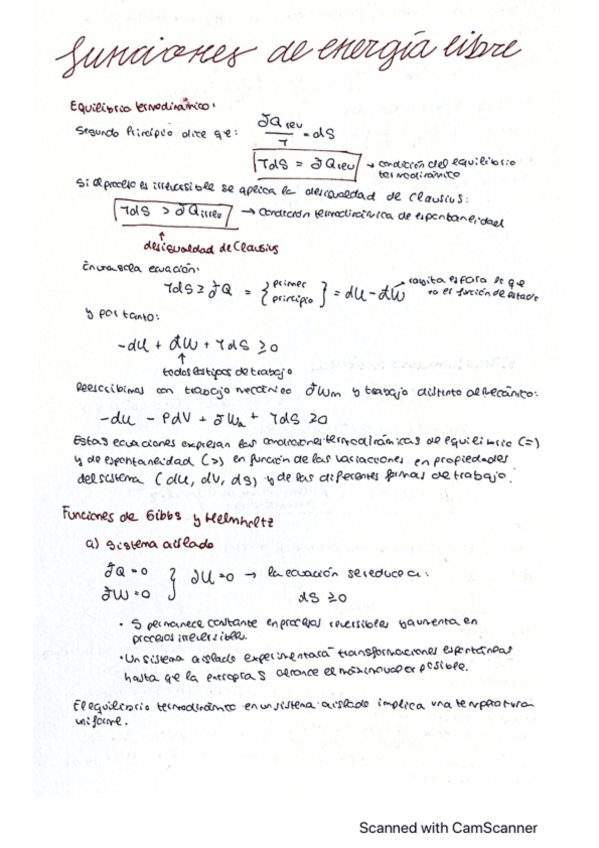 funciones de energía libre
Equilibrio termodinámico:
Segundo Principio dice que: đQrev / T = dS
TdS = đQrev → condición del equilibrio termodinámico
Si el proceso es irreversible se aplica la desigualdad de Clausius:
TdS > đQirrev → condición termodinámica de espontaneidad
↑
desigualdad de Clausius
En una sola ecuación:
TdS ≥ đQ = { primer principio } = dU - đW → rayita es para de que no es función de estado
y por tanto:
-dU + đW + TdS ≥ 0
↑
todos los tipos de trabajo
Reescribimos con trabajo mecánico đWm y trabajo distinto al mecánico:
-dU - PdV + đWa + TdS ≥ 0
Estas ecuaciones expresan las condiciones termodinámicas de equilibrio (=)
y de espontaneidad (>) en función de las variaciones en propiedades
del sistema (dU, dV, dS) y de las diferentes formas de trabajo.
Funciones de Gibbs y Helmholtz
a) Sistema aislado
đQ = 0
đW = 0 } dU = 0 → la ecuación se reduce a:
dS ≥ 0
• S permanece constante en procesos reversibles y aumenta en
procesos irreversibles.
• Un sistema aislado experimentará transformaciones espontáneas
hasta que la entropía S alcance el máximo valor posible.
El equilibrio termodinámico en un sistema aislado implica una temperatura
uniforme.
Scanned with CamScanner